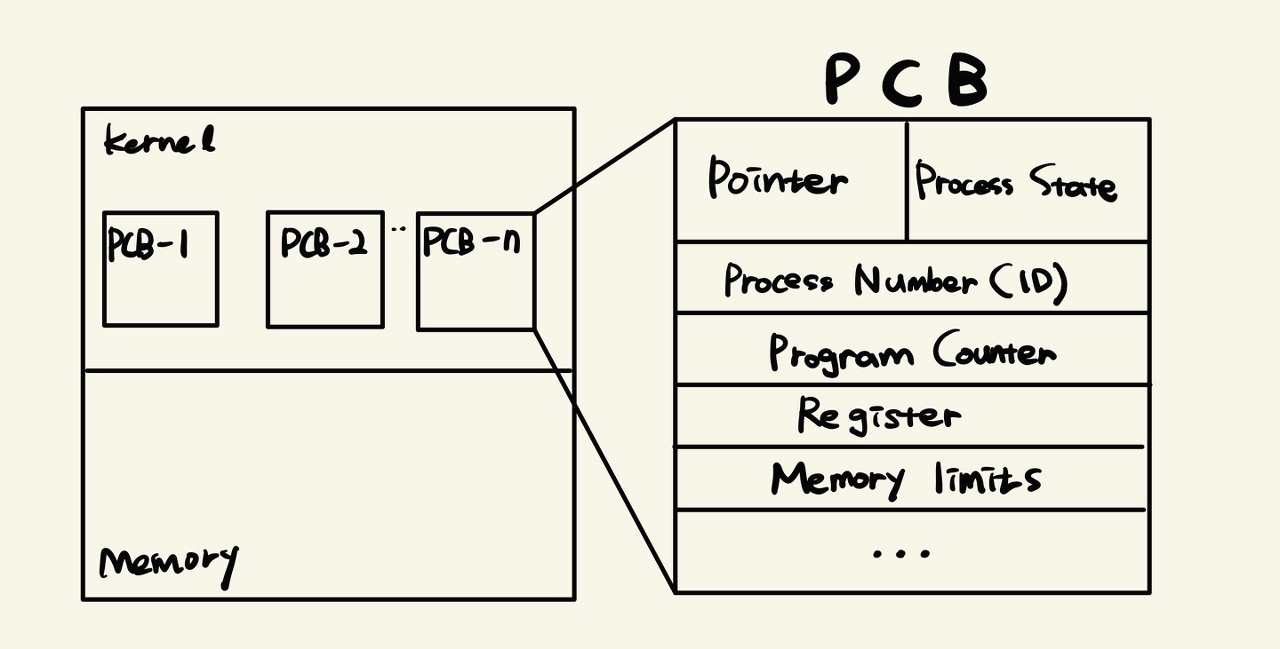 PCB
kernel
PCB-1
PCB-2
..
PCB-n
Memory
Pointer
Process State
Process Number (ID)
Program Counter
Register
Memory limits
...